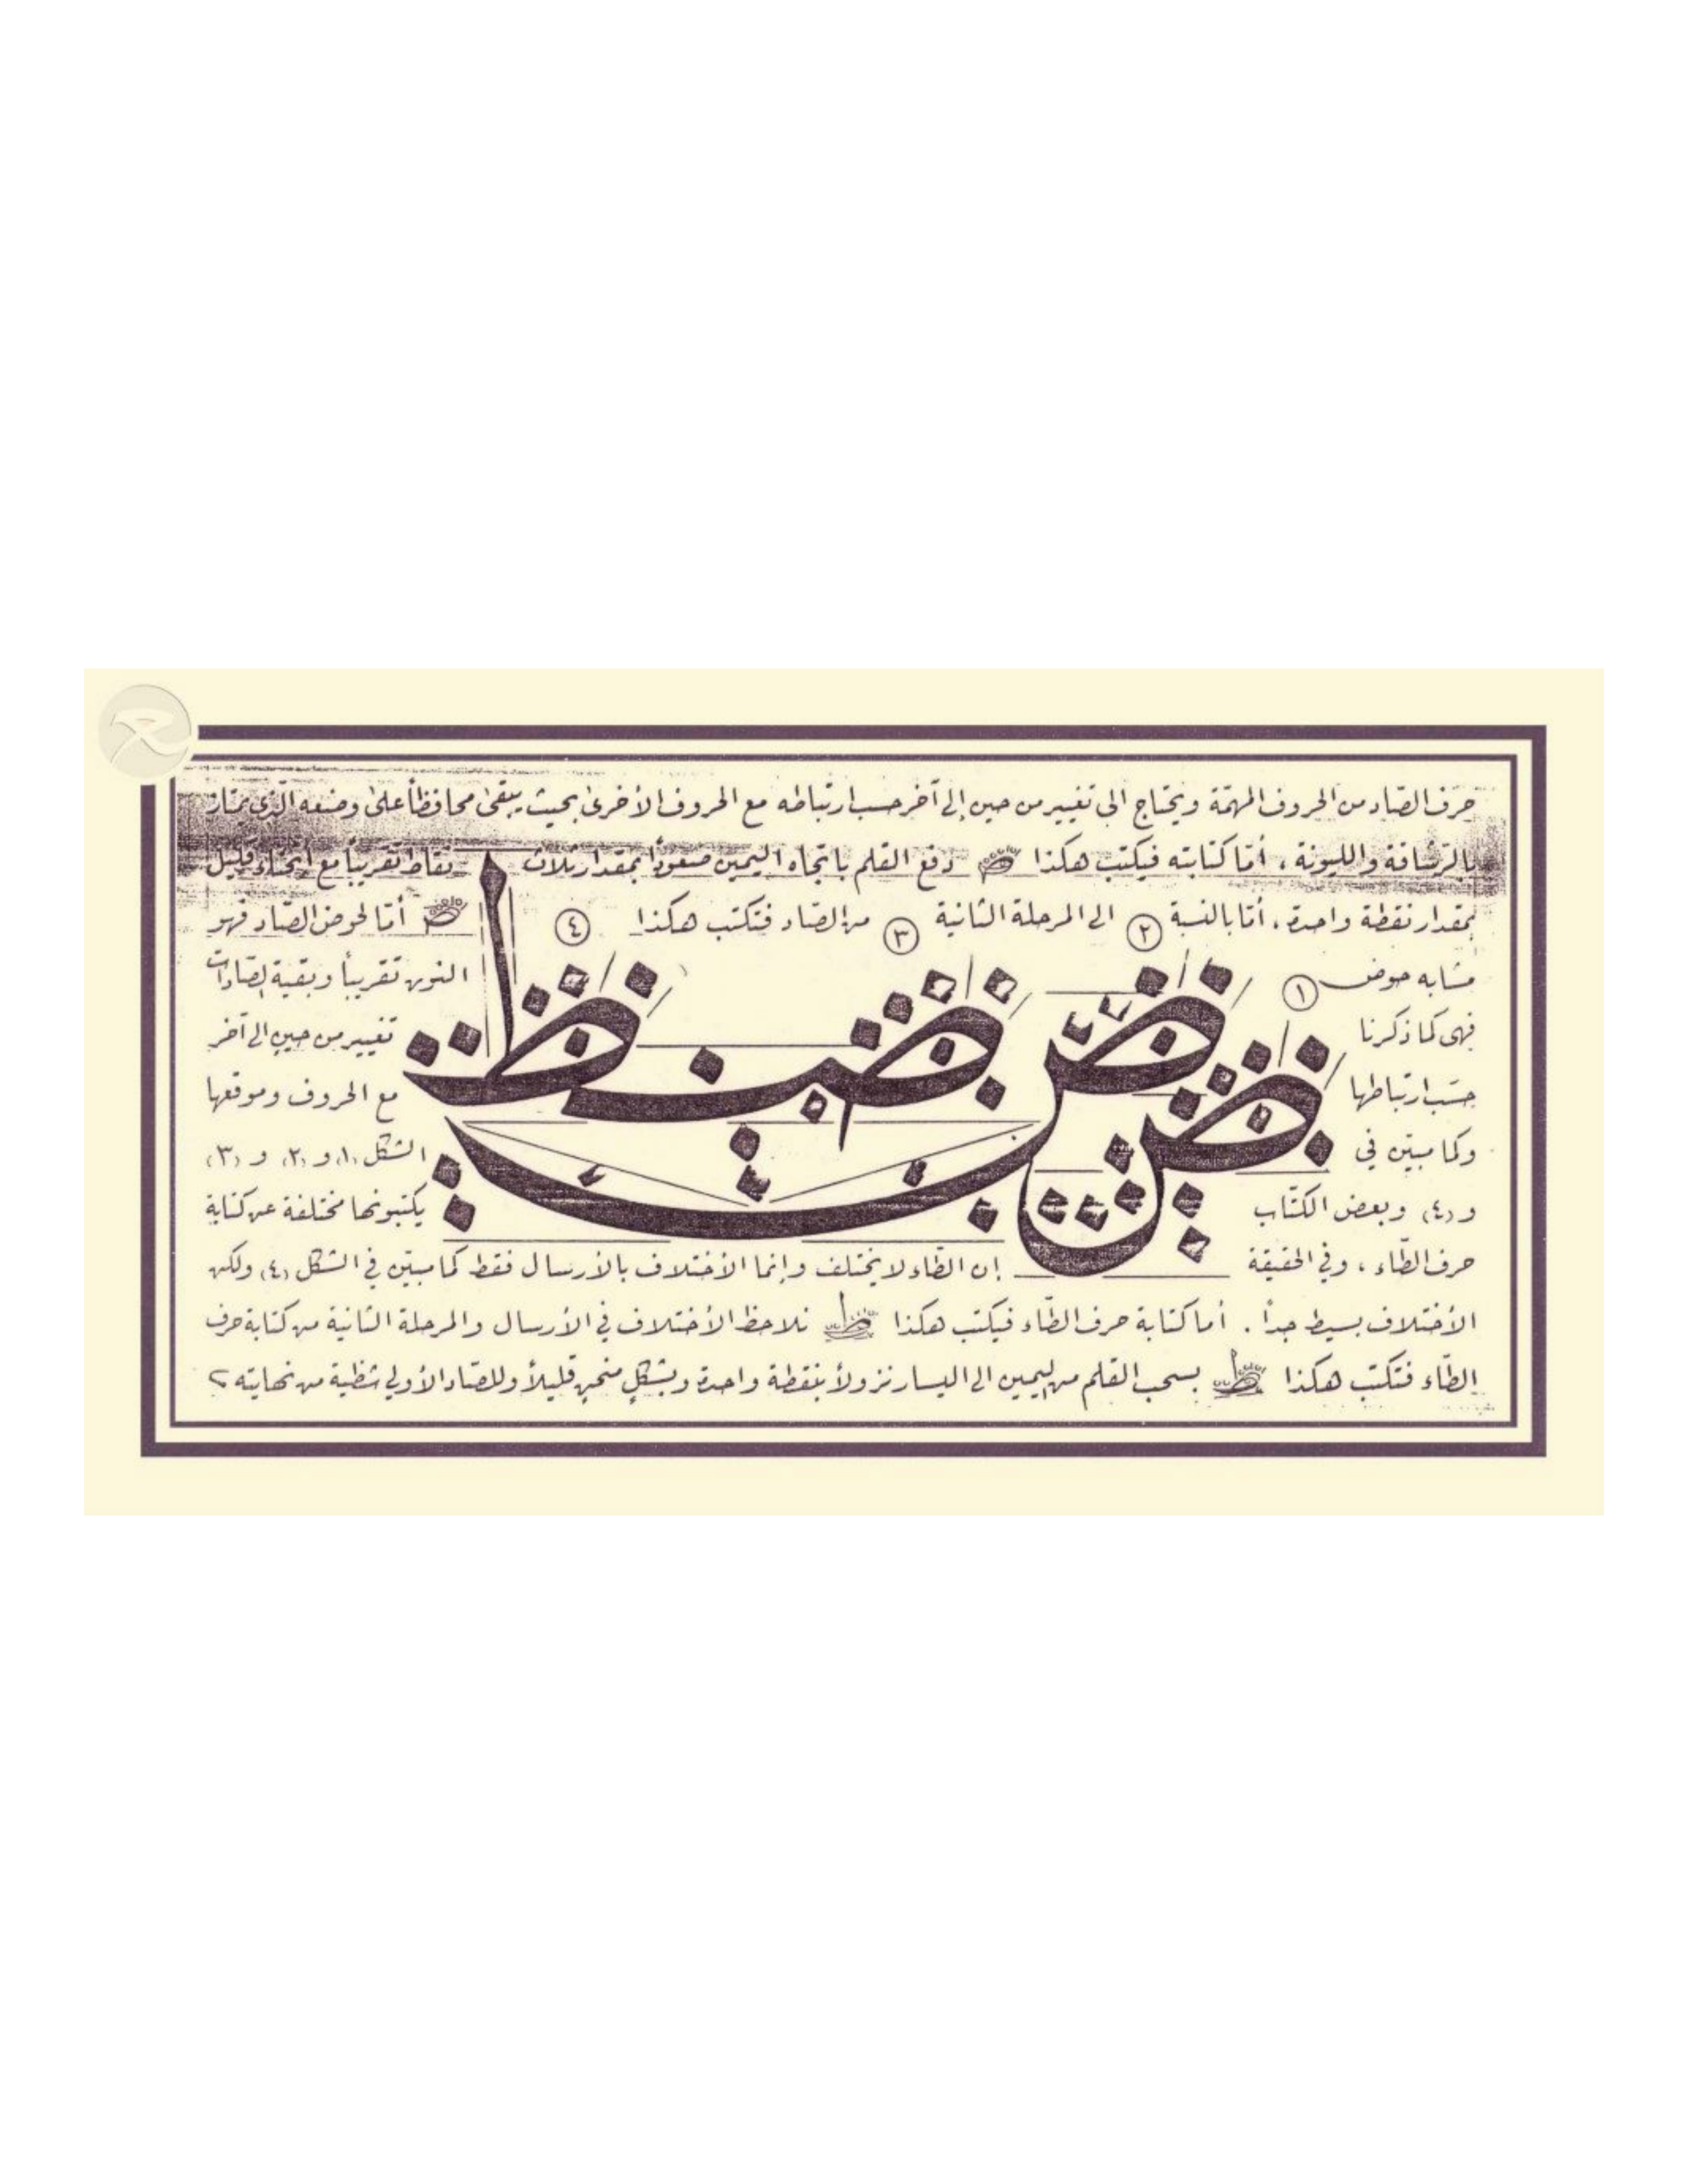 حرف الصّاد من الحروف المهمّة ويحتاج الى تغيير من حين إلى آخر حسب ارتباطه مع الحروف الأخرىٰ بحيث يبقىٰ محافظاً علىٰ وضعه الّذي يمتاز
بالرّشاقة والليونة ، أمّا كتابته فيكتب هكذا دفع القلم باتجاه اليمين صعوداً بمقدار ثلاث نقاط تقريباً مع انحناء قليل
بمقدار نقطة واحدة . أمّا بالنسبة ٢ الى المرحلة الثانية ٣ من الصّاد فتكتب هكذا ٤ أمّا لحوض الصّاد فهو
مشابه حوض ١ النون تقريباً وبقية الصّادات
فهى كما ذكرنا تغيير من حين الى آخر
حسَب ارتباطها مع الحروف وموقعها
وكما مبيّن في الشكل (١) و (٢) و (٣)
و (٤) وبعض الكتّاب يكتبونها مختلفة عن كتابة
حرف الطّاء ، وفي الحقيقة إن الطّاء لا يختلف وإنما الأختلاف بالأرسال فقط كما مبيّن في الشكل (٤) ولكن
الأختلاف بسيط جداً . أما كتابة حرف الطّاء فيكتب هكذا نلاحظ الأختلاف في الأرسال والمرحلة الثانية من كتابة حرف
الطّاء فتكتب هكذا بسحب القلم من اليمين الى اليسار نزولاً بنقطة واحدة وبشكلٍ منحنٍ قليلاً وللصّاد الأولي شظية من نهايته